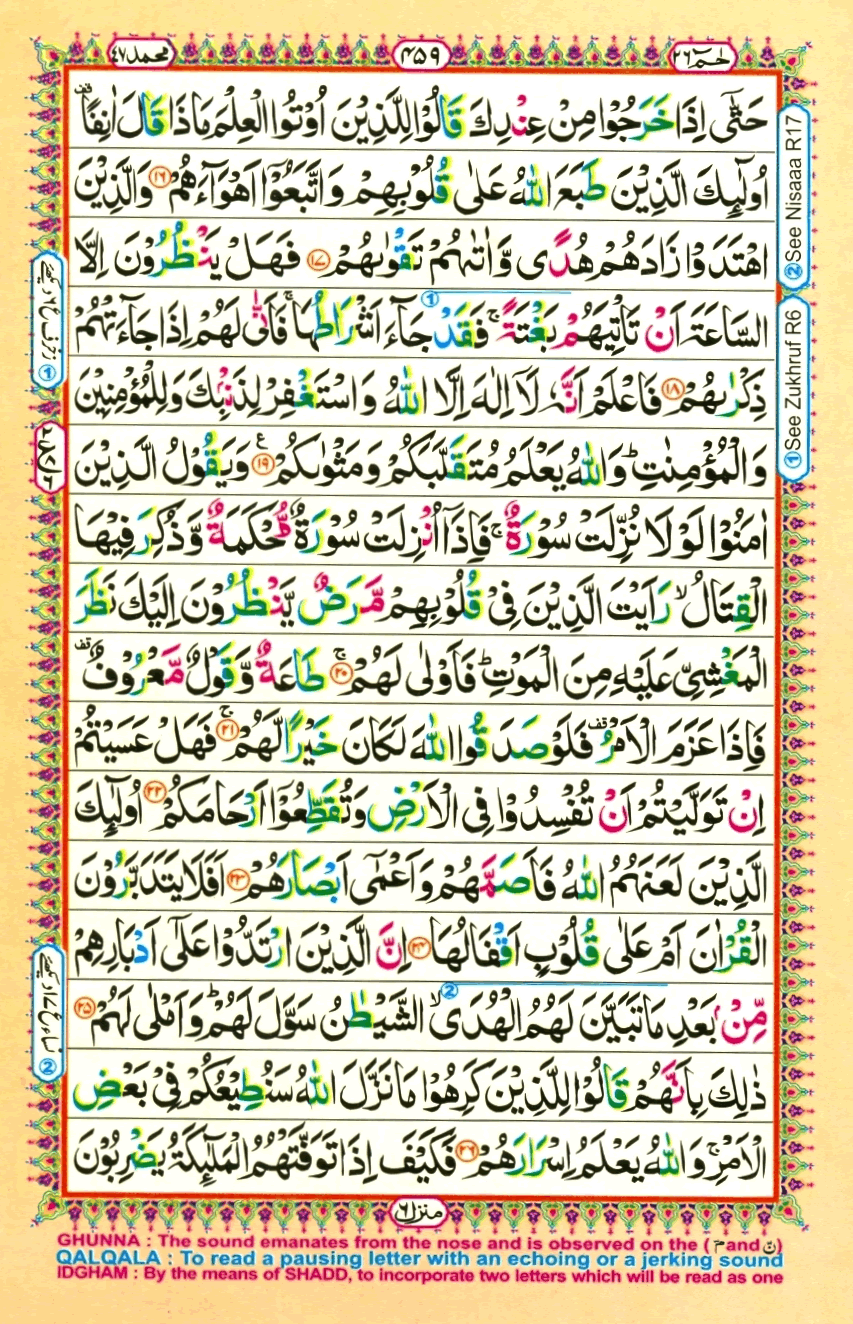 حٰمٓ ٢٦
٤٥٩
محمد ٤٧
حَتّٰۤى اِذَا خَرَجُوْا مِنْ عِنْدِكَ قَالُوْا لِلَّذِيْنَ اُوْتُوا الْعِلْمَ مَاذَا قَالَ اٰنِفًا ۫
اُولٰٓئِكَ الَّذِيْنَ طَبَعَ اللّٰهُ عَلٰى قُلُوْبِهِمْ وَاتَّبَعُوْۤا اَهْوَآءَهُمْ ١٦ وَالَّذِيْنَ
اهْتَدَوْا زَادَهُمْ هُدًى وَّاٰتٰىهُمْ تَقْوٰىهُمْ ١٧ فَهَلْ يَنْظُرُوْنَ اِلَّا
السَّاعَةَ اَنْ تَاْتِيَهُمْ بَغْتَةً ۚ فَقَدْ جَآءَ اَشْرَاطُهَا ۚ فَاَنّٰى لَهُمْ اِذَا جَآءَتْهُمْ
ذِكْرٰىهُمْ ١٨ فَاعْلَمْ اَنَّهٗ لَاۤ اِلٰهَ اِلَّا اللّٰهُ وَاسْتَغْفِرْ لِذَنْۢبِكَ وَلِلْمُؤْمِنِيْنَ
وَالْمُؤْمِنٰتِ ؕ وَاللّٰهُ يَعْلَمُ مُتَقَلَّبَكُمْ وَمَثْوٰىكُمْ ١٩ وَيَقُوْلُ الَّذِيْنَ
اٰمَنُوْا لَوْلَا نُزِّلَتْ سُوْرَةٌ ۚ فَاِذَاۤ اُنْزِلَتْ سُوْرَةٌ مُّحْكَمَةٌ وَّذُكِرَ فِيْهَا
الْقِتَالُ ۙ رَاَيْتَ الَّذِيْنَ فِيْ قُلُوْبِهِمْ مَّرَضٌ يَّنْظُرُوْنَ اِلَيْكَ نَظَرَ
الْمَغْشِيِّ عَلَيْهِ مِنَ الْمَوْتِ ؕ فَاَوْلٰى لَهُمْ ٢٠ طَاعَةٌ وَّقَوْلٌ مَّعْرُوْفٌ ۫
فَاِذَا عَزَمَ الْاَمْرُ ۫ فَلَوْ صَدَقُوا اللّٰهَ لَكَانَ خَيْرًا لَّهُمْ ٢١ فَهَلْ عَسَيْتُمْ
اِنْ تَوَلَّيْتُمْ اَنْ تُفْسِدُوْا فِى الْاَرْضِ وَتُقَطِّعُوْۤا اَرْحَامَكُمْ ٢٢ اُولٰٓئِكَ
الَّذِيْنَ لَعَنَهُمُ اللّٰهُ فَاَصَمَّهُمْ وَاَعْمٰۤى اَبْصَارَهُمْ ٢٣ اَفَلَا يَتَدَبَّرُوْنَ
الْقُرْاٰنَ اَمْ عَلٰى قُلُوْبٍ اَقْفَالُهَا ٢٤ اِنَّ الَّذِيْنَ ارْتَدُّوْا عَلٰۤى اَدْبَارِهِمْ
مِّنْۢ بَعْدِ مَا تَبَيَّنَ لَهُمُ الْهُدَى ۙ الشَّيْطٰنُ سَوَّلَ لَهُمْ ؕ وَاَمْلٰى لَهُمْ ٢٥
ذٰلِكَ بِاَنَّهُمْ قَالُوْا لِلَّذِيْنَ كَرِهُوْا مَا نَزَّلَ اللّٰهُ سَنُطِيْعُكُمْ فِيْ بَعْضِ
الْاَمْرِ ۚ وَاللّٰهُ يَعْلَمُ اِسْرَارَهُمْ ٢٦ فَكَيْفَ اِذَا تَوَفَّتْهُمُ الْمَلٰٓئِكَةُ يَضْرِبُوْنَ
② See Nisaaa R17
① See Zukhruf R6
①
②
منزل ٦
GHUNNA : The sound emanates from the nose and is observed on the ( م and ن )
QALQALA : To read a pausing letter with an echoing or a jerking sound
IDGHAM : By the means of SHADD, to incorporate two letters which will be read as one